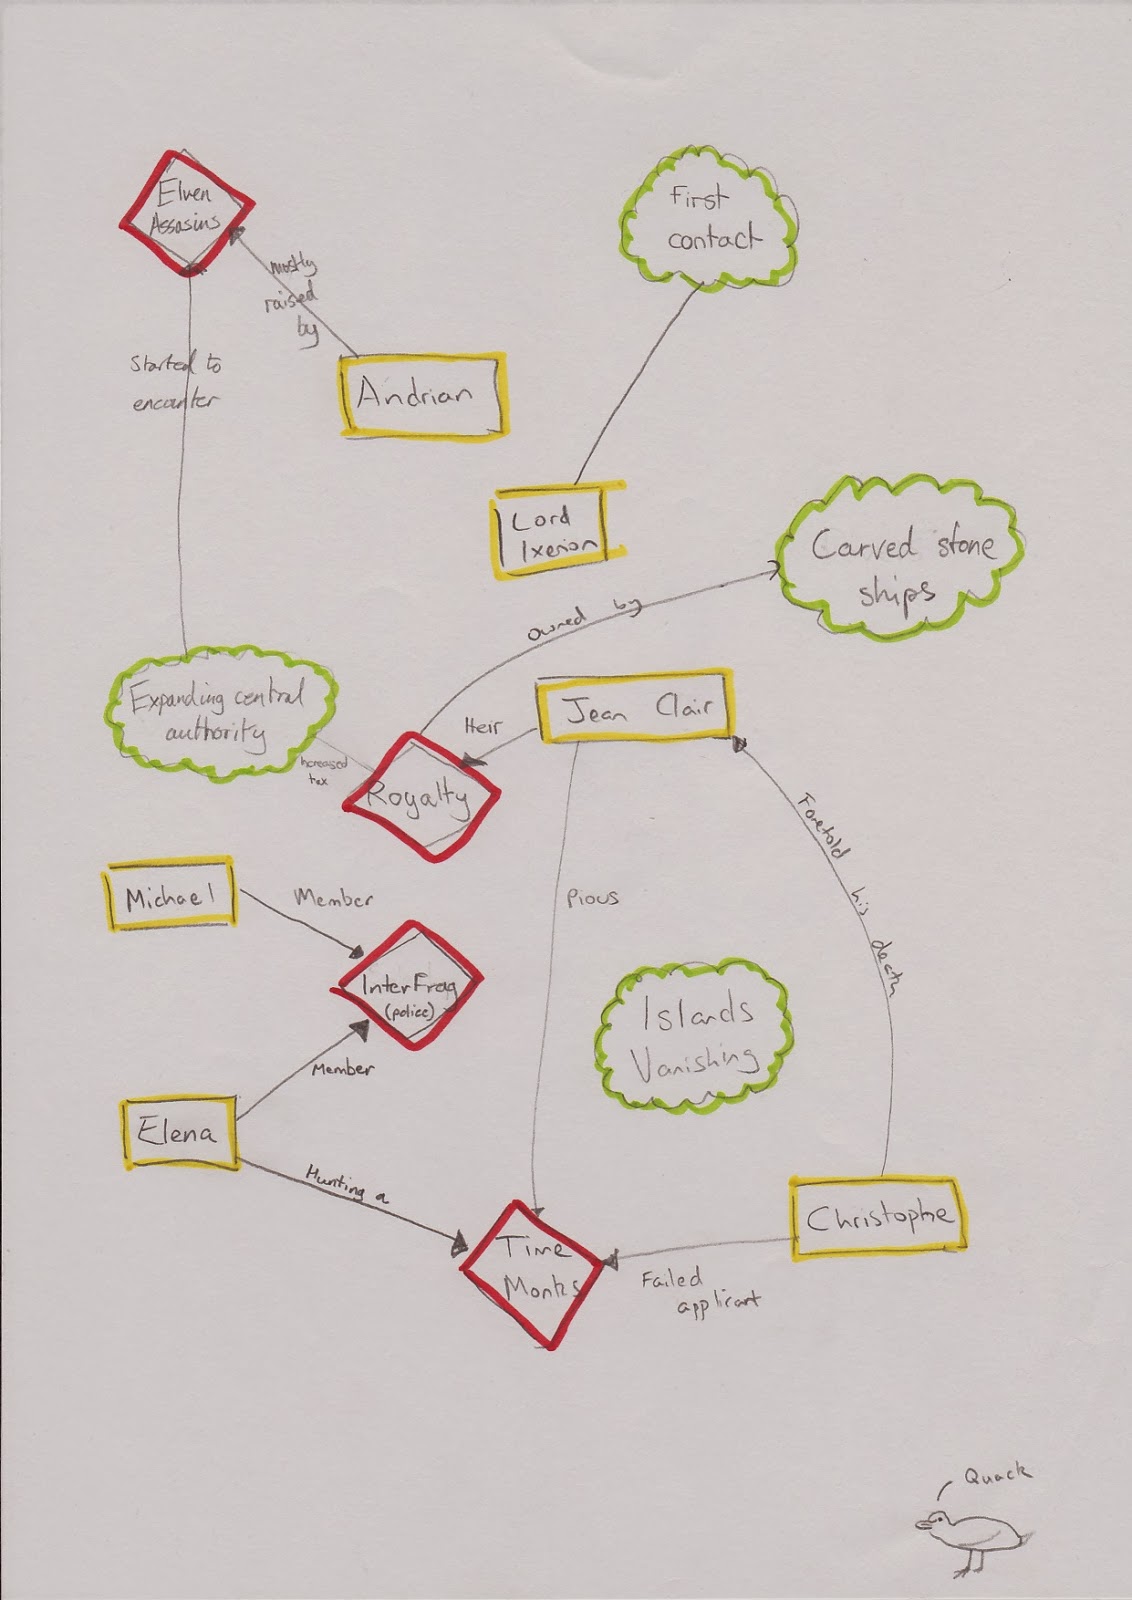 Elven
Assasins
First
contact
mostly
raised
by
Started to
encounter
Andrian
Lord
Ixerion
Carved stone
ships
Owned by
Expanding central
authority
Jean Clair
Heir
Increased
tax
Royalty
Michael
Member
Foretold his death
Pious
InterFrag
(police)
Islands
Vanishing
Member
Elena
Hunting a
Christophe
Time
Monks
Failed
applicant
Quack